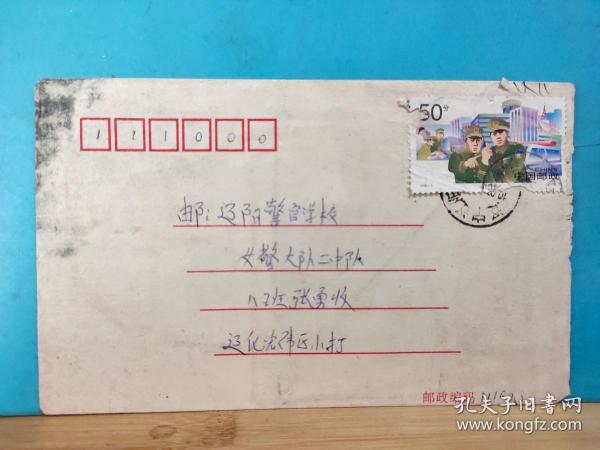 111000
50分
CHINA
中国邮政
邮:辽阳警官学校
女警大队二中队
八班张勇收
辽化
小打
邮政编码
孔夫子旧书网
www.kongfz.com